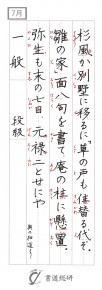 7月
杉風が別墅に移るに「草の戸も住替る代ぞ
雛の家」面八句を書て庵の柱に懸置。
弥生も末の七日、元禄二とせにや
奥の細道より
一般 段級
書道総研